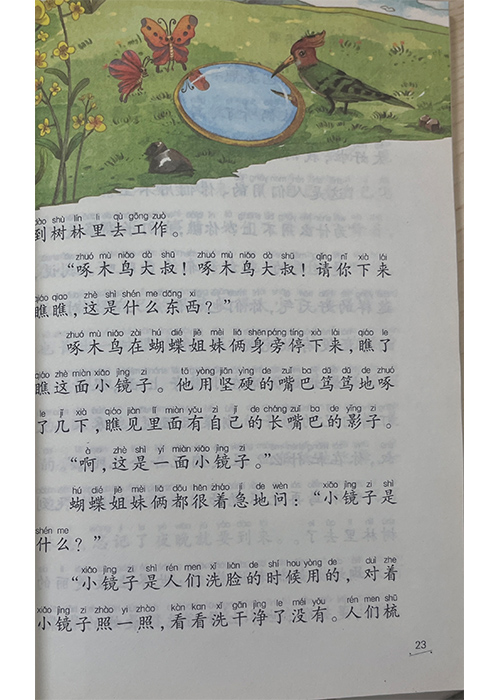 dào shù lín lǐ qù gōng zuò
到树林里去工作。
zhuó mù niǎo dà shū zhuó mù niǎo dà shū qǐng nǐ xià lái
“啄木鸟大叔！啄木鸟大叔！请你下来
qiáo qiao zhè shì shén me dōng xi
瞧瞧，这是什么东西？”
zhuó mù niǎo zài hú dié jiě mèi liǎ shēn páng tíng xià lái qiáo le
啄木鸟在蝴蝶姐妹俩身旁停下来，瞧了
qiáo zhè miàn xiǎo jìng zi tā yòng jiān yìng de zuǐ ba dǔ dǔ de zhuó
瞧这面小镜子。他用坚硬的嘴巴笃笃地啄
le jǐ xià qiáo jiàn lǐ miàn yǒu zì jǐ de cháng zuǐ ba de yǐng zi
了几下，瞧见里面有自己的长嘴巴的影子。
à zhè shì yí miàn xiǎo jìng zi
“啊，这是一面小镜子。”
hú dié jiě mèi liǎ dōu hěn zháo jí de wèn xiǎo jìng zi shì
蝴蝶姐妹俩都很着急地问：“小镜子是
shén me
什么？”
xiǎo jìng zi shì rén men xǐ liǎn de shí hou yòng de duì zhe
“小镜子是人们洗脸的时候用的，对着
xiǎo jìng zi zhào yi zhào kàn kan xǐ gān jìng le méi yǒu rén men shū
小镜子照一照，看看洗干净了没有。人们梳
23